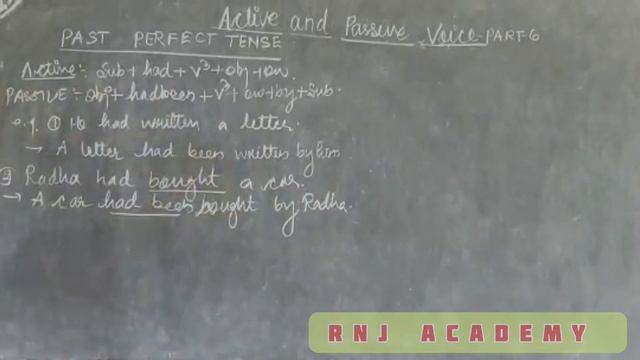 Active and Passive Voice-PART-6
PAST PERFECT TENSE
Active:- Sub + had + v³ + obj + ow.
PASSIVE:- Obj + hadbeen + v³ + ow + by + sub.
e.g. ① He had written a letter.
→ A letter had been written by him
② Radha had bought a car.
→ A car had been bought by Radha.
RNJ ACADEMY